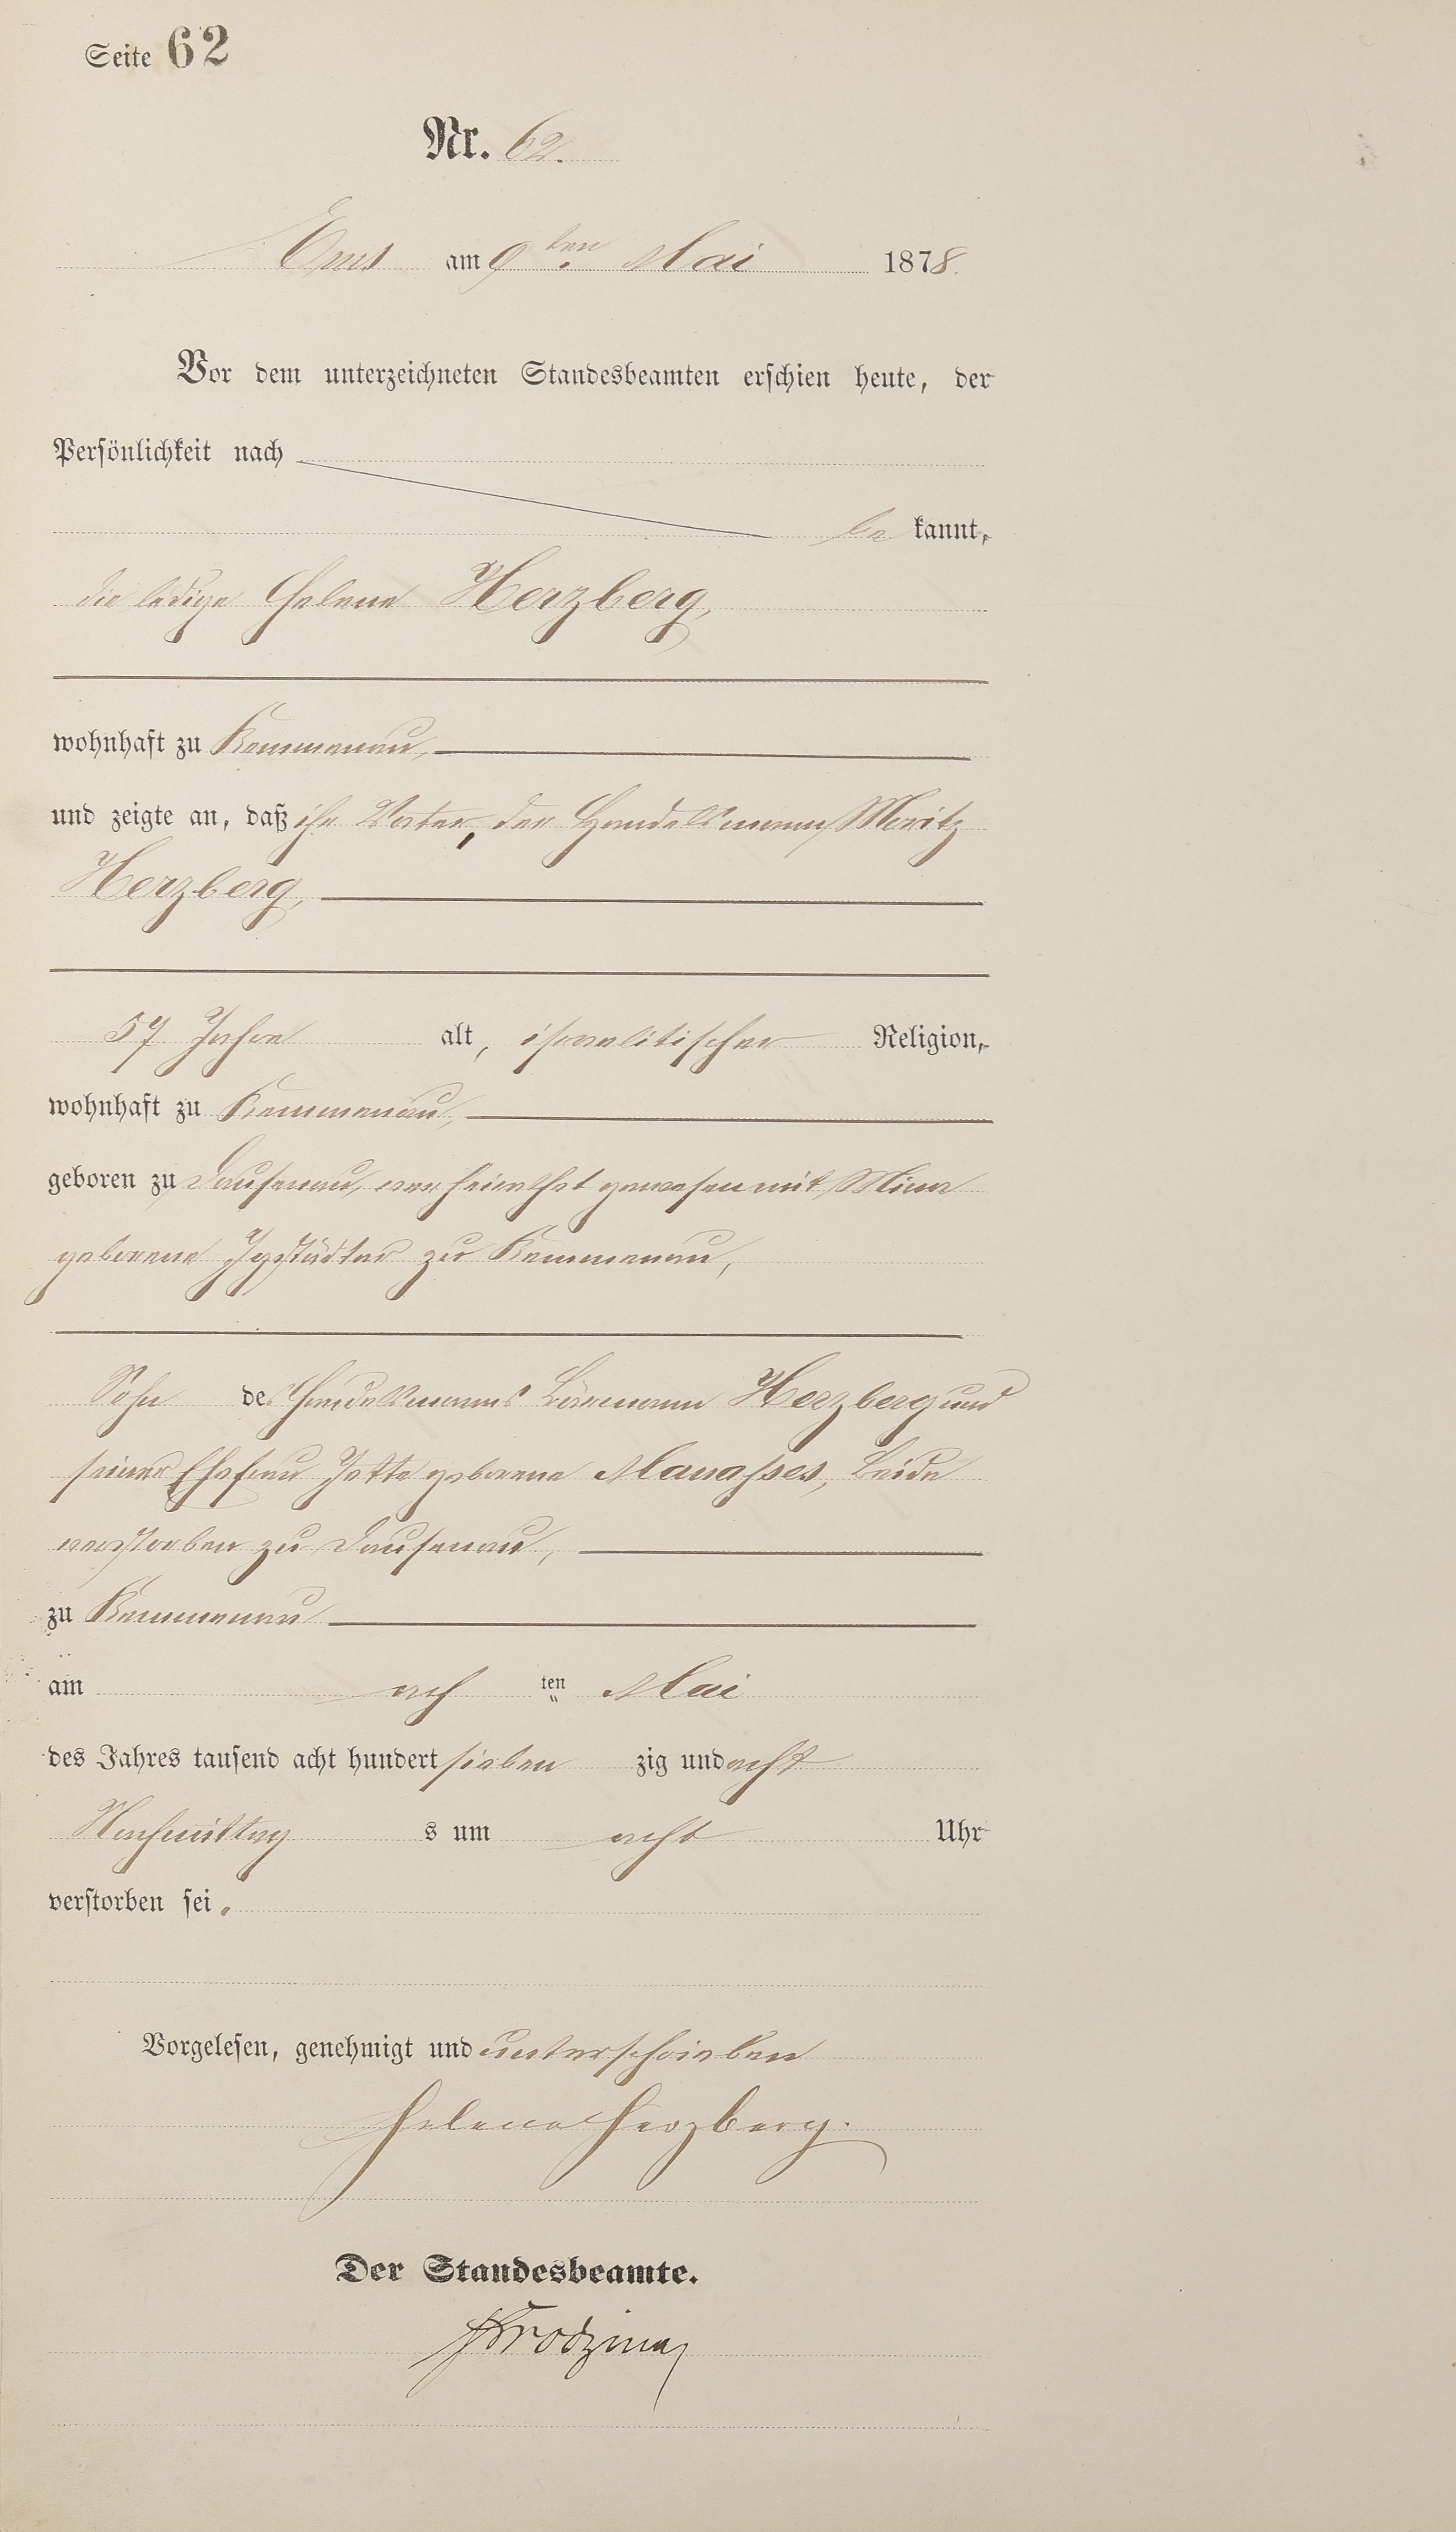 Seite 62
Nr. 62.
Ems am 9ten Mai 1878.
Vor dem unterzeichneten Standesbeamten erschien heute, der
Persönlichkeit nach
be kannt,
die ledige Helene Herzberg,
wohnhaft zu Kemmenau,
und zeigte an, daß ihr Vater, der Handelsmann Moritz
Herzberg,
57 Jahre alt, israelitischer Religion,
wohnhaft zu Kemmenau,
geboren zu Dausenau, verheirathet gewesen mit Mina
geborene Igstädter zu Kemmenau,
Sohn des Handelsmanns Bärmann Herzberg und
seiner Ehefrau Jette geborene Manasses, Beide
verstorben zu Dausenau,
zu Kemmenau
am ach ten Mai
des Jahres tausend acht hundert sieben zig und acht
Nachmittag s um acht Uhr
verstorben sei.
Vorgelesen, genehmigt und unterschrieben
Helene Herzberg.
Der Standesbeamte.